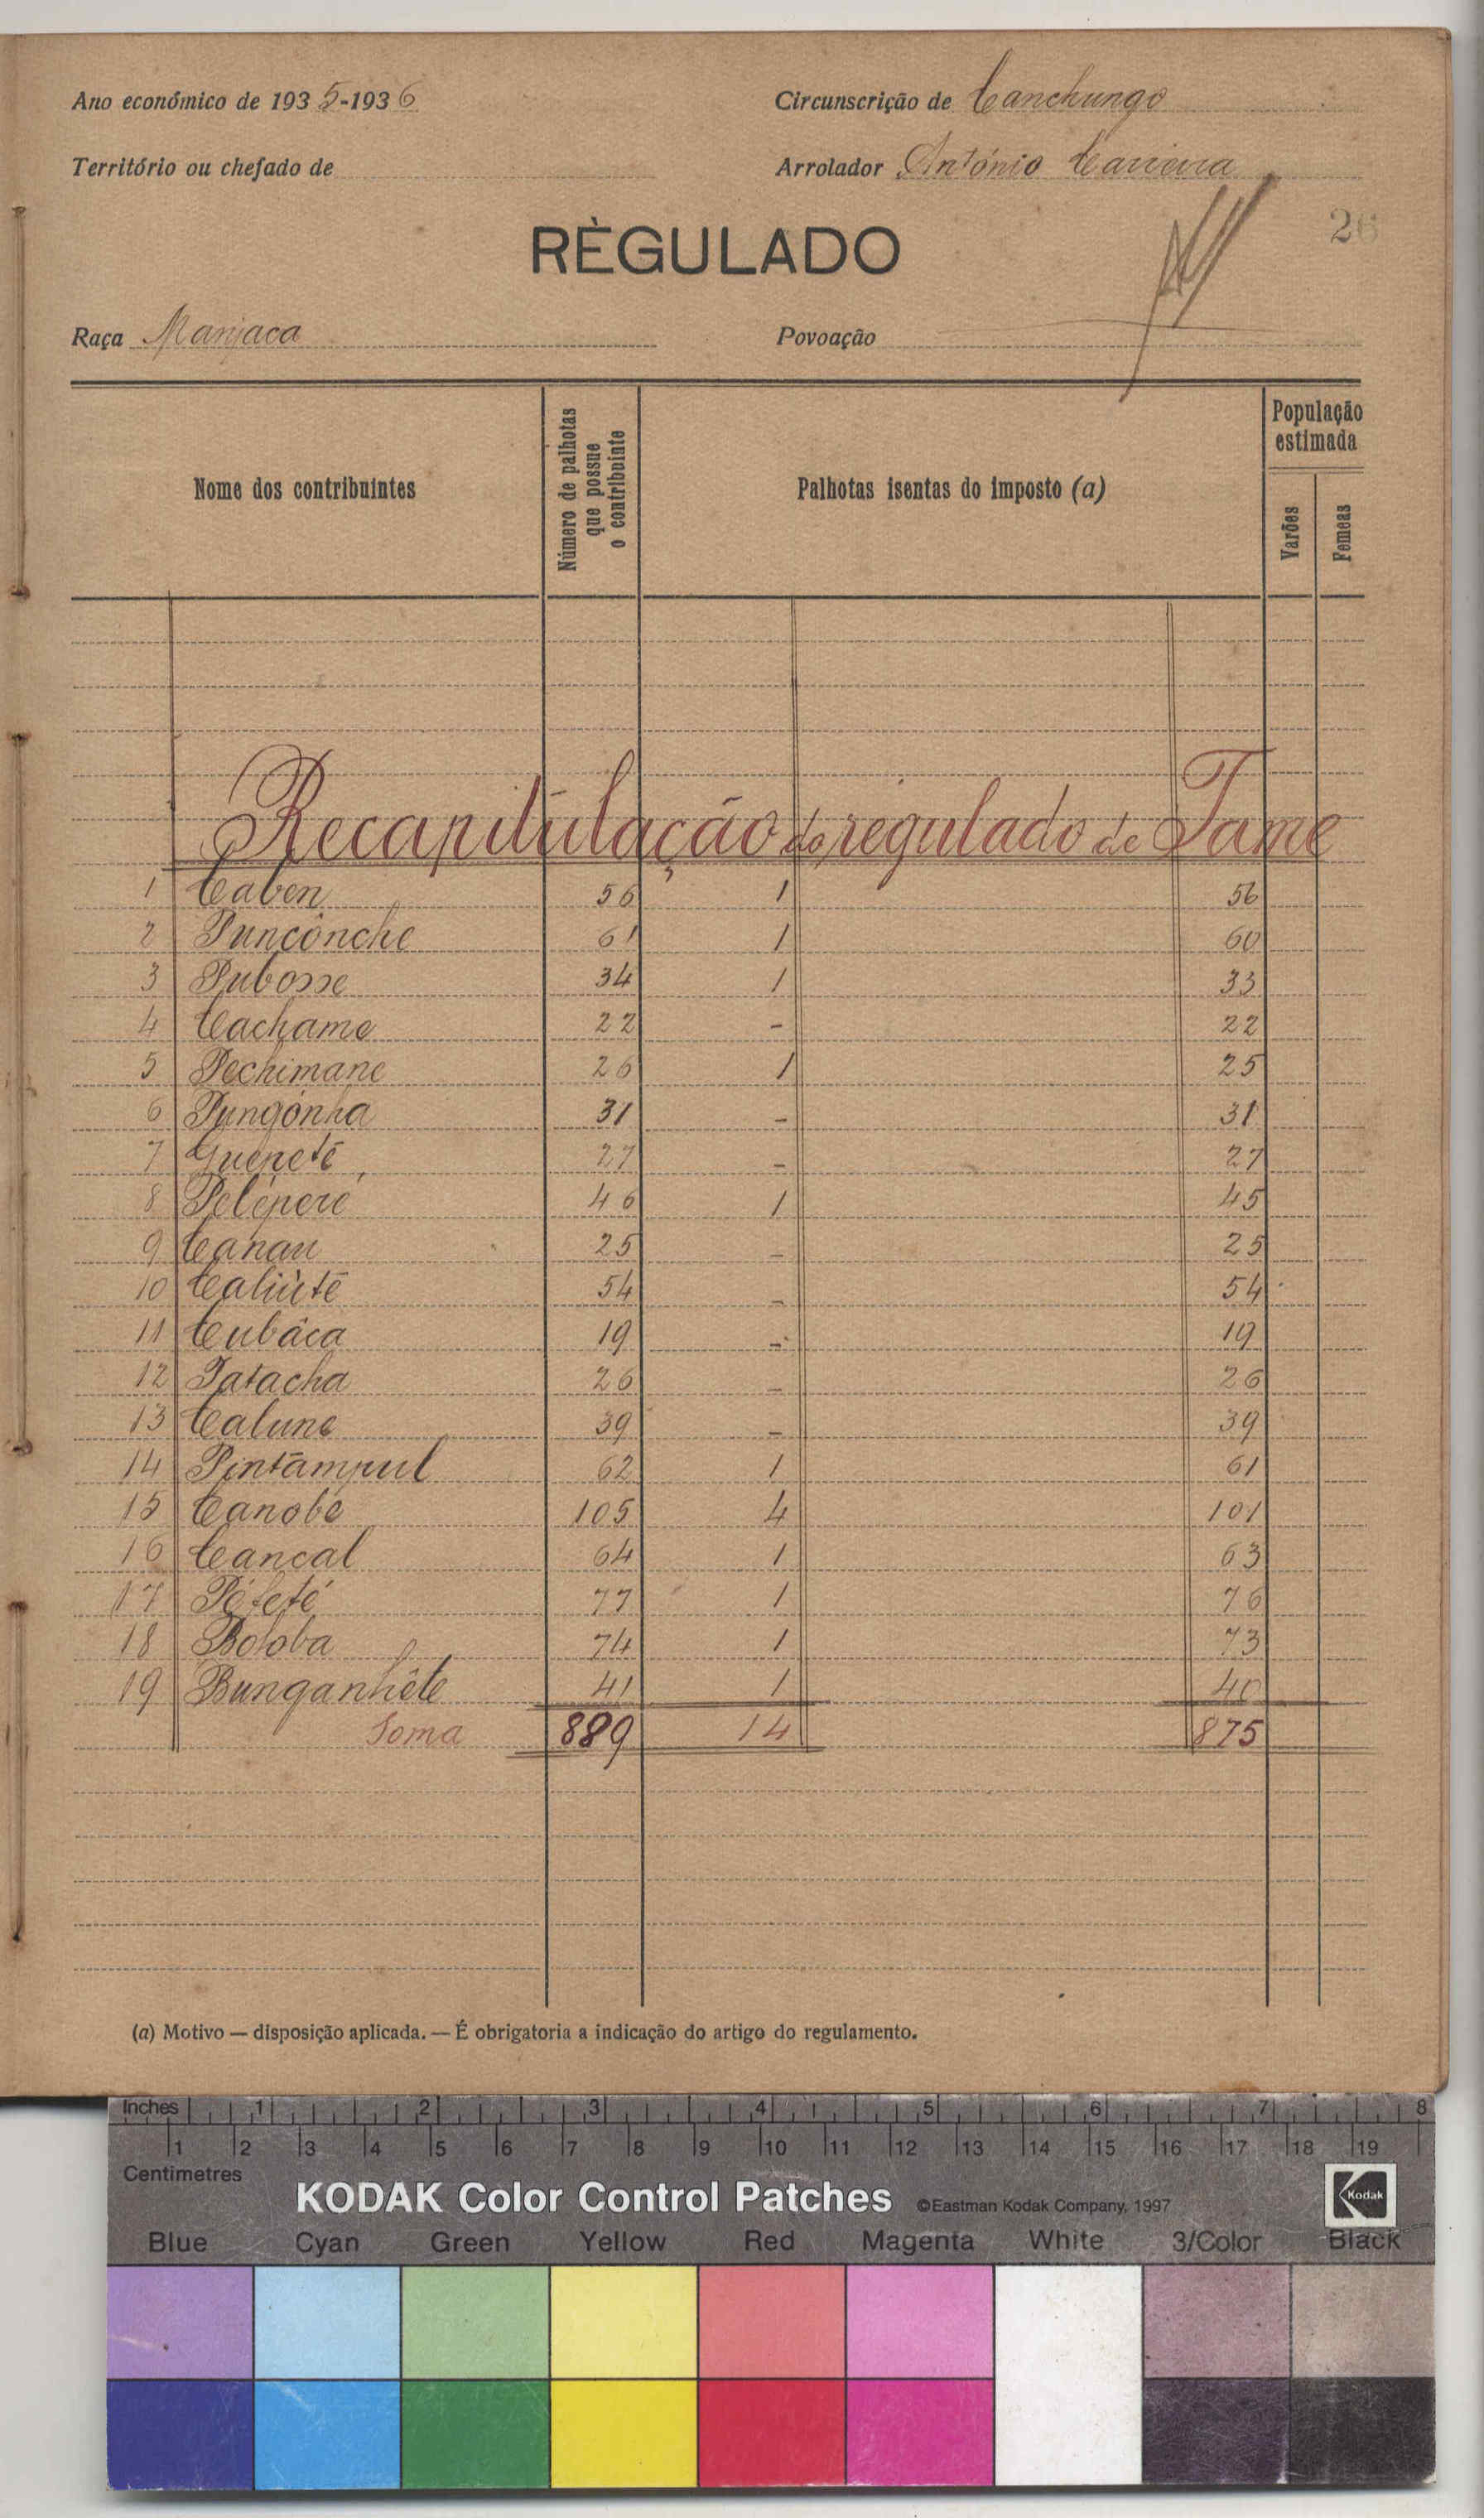 Ano económico de 1935-1936
Circunscrição de Canchungo
Território ou chefado de
Arrolador António Carreira
26
RÈGULADO
Raça Manjaca
Povoação
Nome dos contribuintes
Número de palhotas que possue o contribuinte
Palhotas isentas do imposto (a)
População estimada
Varões
Femeas
Recapitulação do regulado de Tame
1 Caben 56 1 56
2 Punçônche 61 1 60
3 Pubosse 34 1 33
4 Cachame 22 - 22
5 Pechimane 26 1 25
6 Pungónha 31 - 31
7 Guenetê 27 - 27
8 Pelépere 46 1 45
9 Canau 25 - 25
10 Caliùtê 54 - 54
11 Cubáca 19 - 19
12 Tatacha 26 - 26
13 Calune 39 - 39
14 Pintámpul 62 1 61
15 Canobe 105 4 101
16 Cancal 64 1 63
17 Péleté 77 1 76
18 Boloba 74 1 73
19 Bunganhête 41 1 40
Soma 889 14 875
(a) Motivo — disposição aplicada. — É obrigatoria a indicação do artigo do regulamento.
Inches 1 2 3 4 5 6 7 8
1 2 3 4 5 6 7 8 9 10 11 12 13 14 15 16 17 18 19
Centimetres
KODAK Color Control Patches ©Eastman Kodak Company, 1997 Kodak
Blue Cyan Green Yellow Red Magenta White 3/Color Black